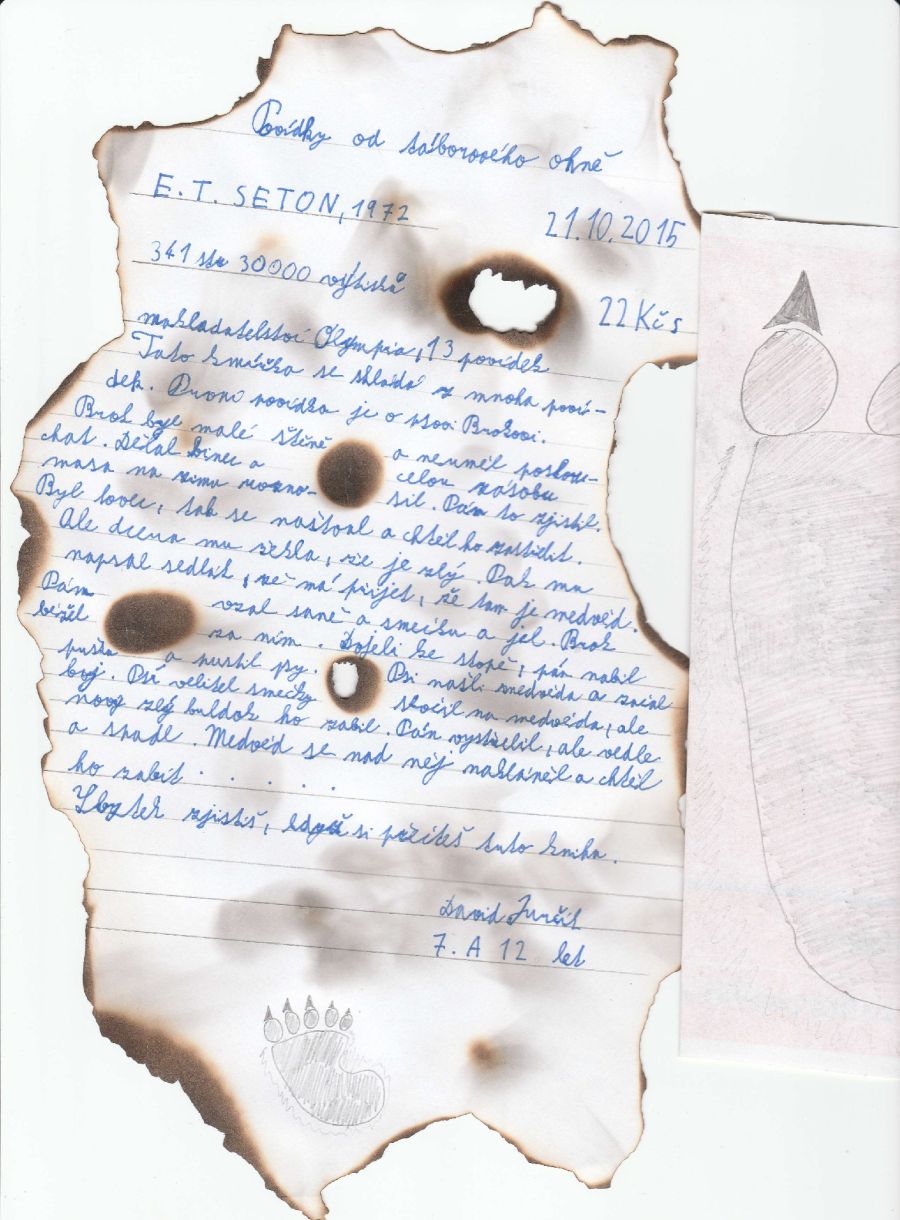 Povídky od táborového ohně
E. T. SETON, 1972
21.10.2015
341 str 30000 výtisků
22 Kčs
nakladatelství Olympia, 13 povídek
Tato knížka se skládá z mnoha poví-
dek. První povídka je o psovi Brokovi.
Brok byl malé štěně a neuměl poslou-
chat. Dělal binec a celou zásobu
masa na zimu rozno- sil. Pán to zjistil.
Byl lovec, tak se naštval a chtěl ho zastřelit.
Ale dcera mu řekla, že je zlý. Pak mu
napsal sedlák, že má přijet, že tam je medvěd.
Pán vzal saně a smečku a jel. Brok
běžel za ním. Dojeli ke stopě, pán nabil
pušku a pustil psy. Psi našli medvěda a začal
boj. Psí velitel smečky skočil na medvěda, ale
nový zlý buldok ho zabil. Pán vystřelil, ale vedle
a spadl. Medvěd se nad něj nakláněl a chtěl
ho zabít . . . . .
Zbytek zjistíš, když si přečteš tuto knihu.
David Jurčík
7. A 12 let